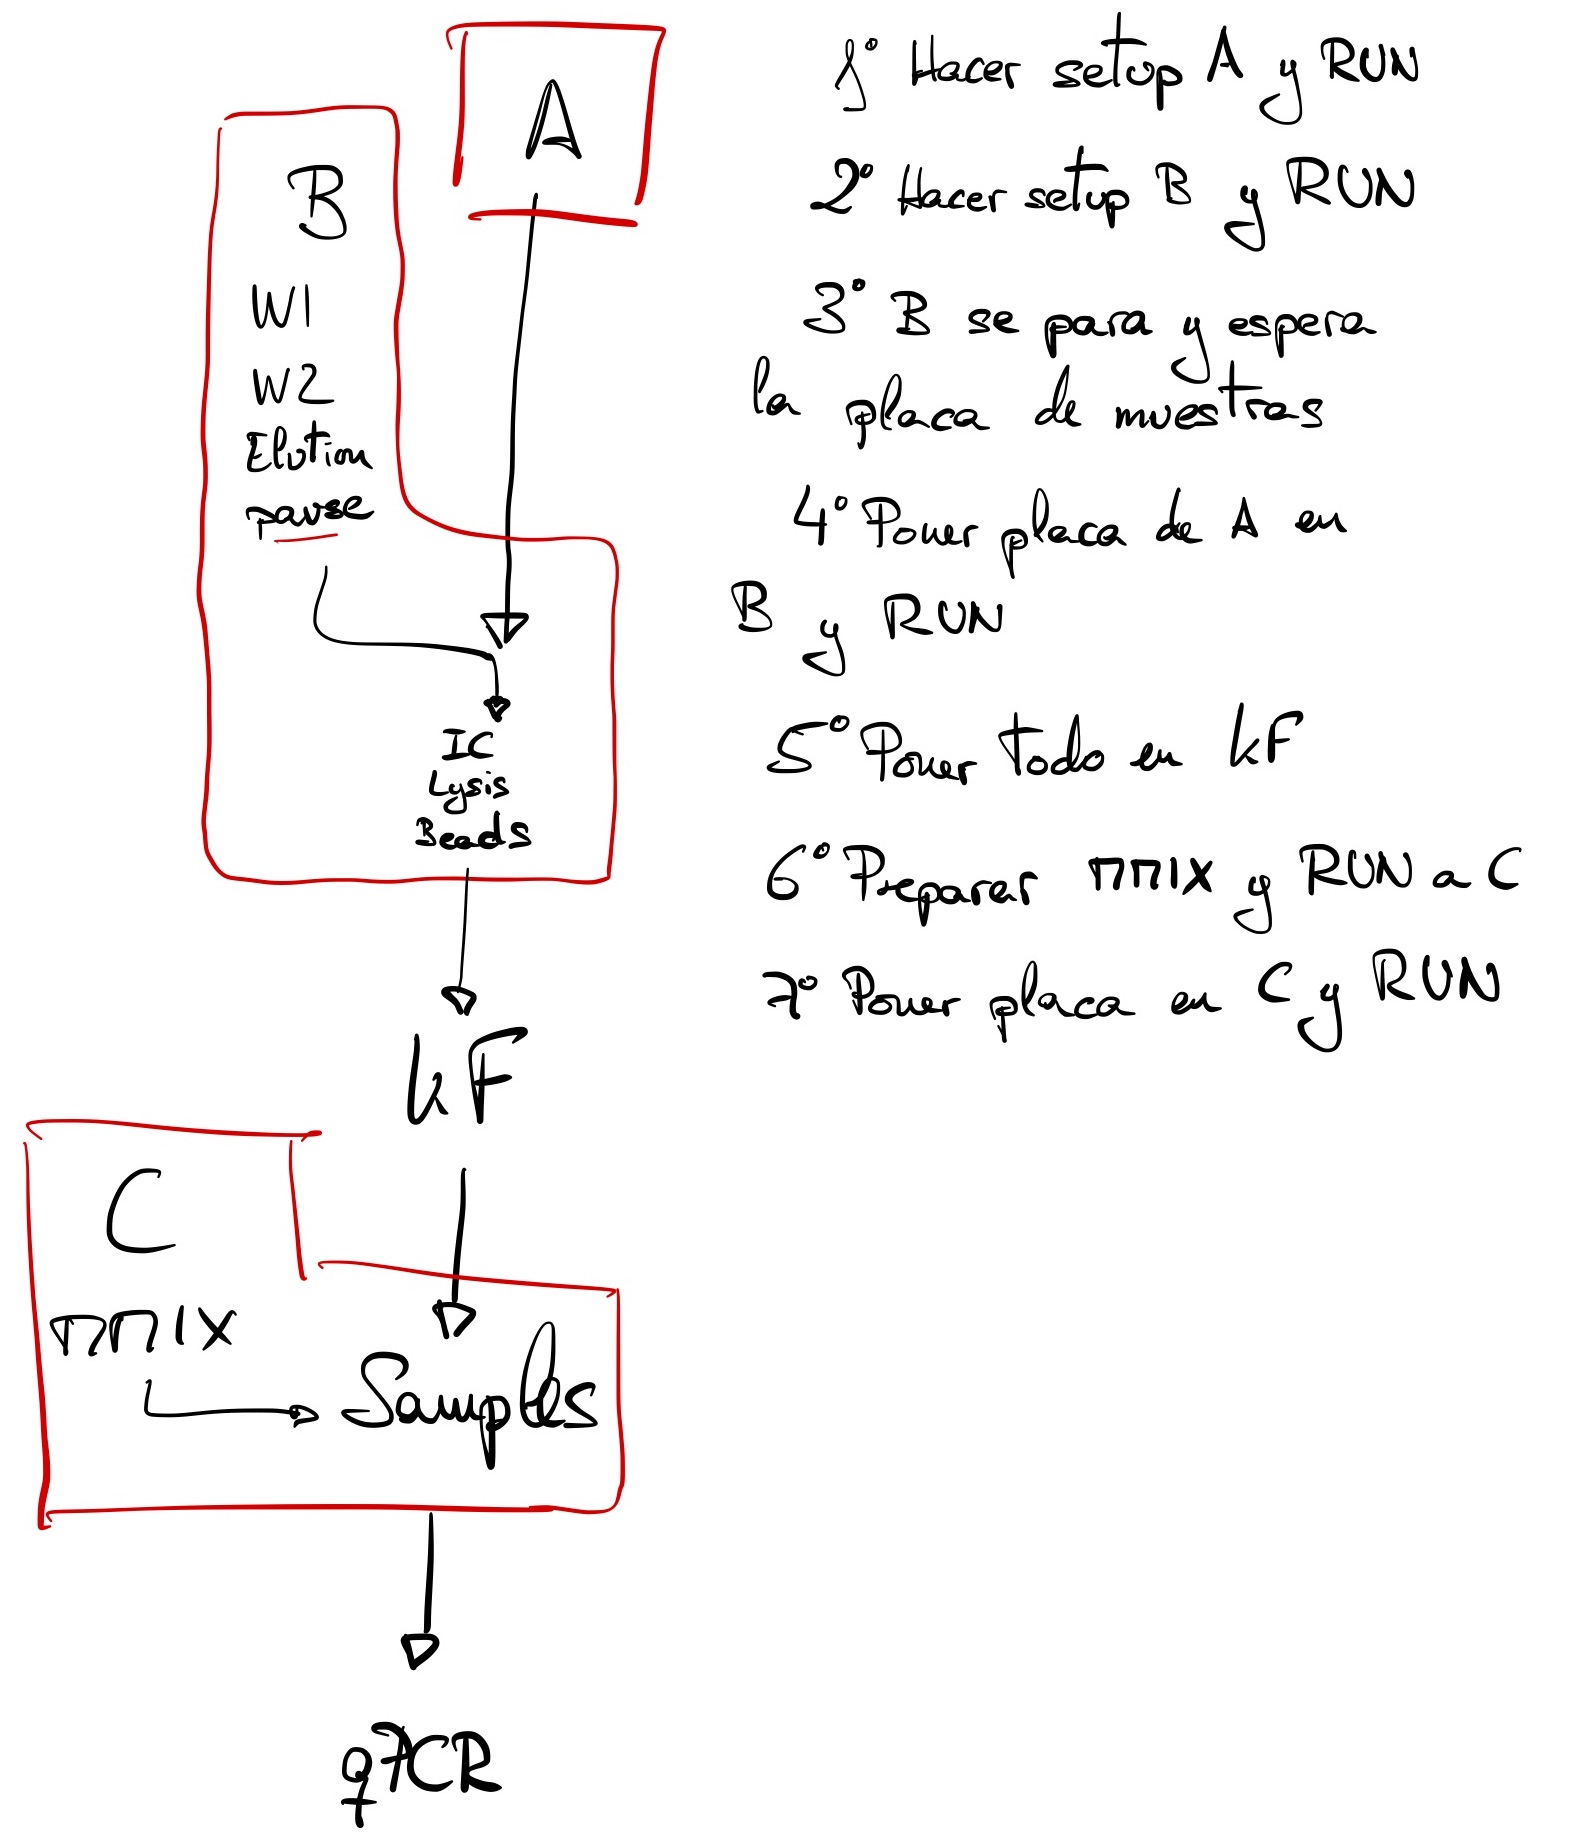 A
B
W1
W2
Elution
pause
IC
Lysis
Beads
kF
C
MMIX
Samples
qPCR
1° Hacer setup A y RUN
2° Hacer setup B y RUN
3° B se para y espera
la placa de muestras
4° Poner placa de A en
B y RUN
5° Poner todo en kF
6° Preparar MMIX y RUN a C
7° Poner placa en C y RUN